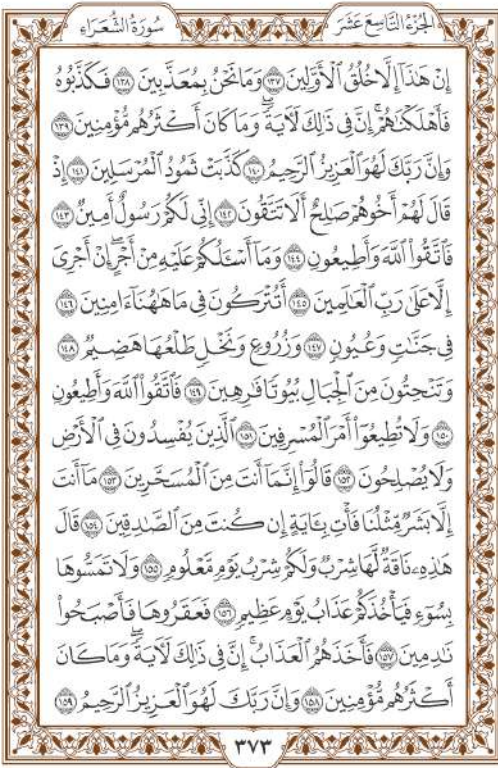 الجُزْءُ التَّاسِعَ عَشَرَ سُورَةُ الشُّعَرَاءِ
إِنْ هَٰذَآ إِلَّا خُلُقُ ٱلْأَوَّلِينَ ١٣٧ وَمَا نَحْنُ بِمُعَذَّبِينَ ١٣٨ فَكَذَّبُوهُ
فَأَهْلَكْنَٰهُمْۚ إِنَّ فِى ذَٰلِكَ لَأٓيَةًۖ وَمَا كَانَ أَكْثَرُهُم مُّؤْمِنِينَ ١٣٩
وَإِنَّ رَبَّكَ لَهُوَ ٱلْعَزِيزُ ٱلرَّحِيمُ ١٤٠ كَذَّبَتْ ثَمُودُ ٱلْمُرْسَلِينَ ١٤١ إِذْ
قَالَ لَهُمْ أَخُوهُمْ صَٰلِحٌ أَلَا تَتَّقُونَ ١٤٢ إِنِّى لَكُمْ رَسُولٌ أَمِينٌ ١٤٣
فَٱتَّقُوا۟ ٱللَّهَ وَأَطِيعُونِ ١٤٤ وَمَآ أَسْـَٔلُكُمْ عَلَيْهِ مِنْ أَجْرٍۖ إِنْ أَجْرِىَ
إِلَّا عَلَىٰ رَبِّ ٱلْعَٰلَمِينَ ١٤٥ أَتُتْرَكُونَ فِى مَا هَٰهُنَآ ءَامِنِينَ ١٤٦
فِى جَنَّٰتٍ وَعُيُونٍ ١٤٧ وَزُرُوعٍ وَنَخْلٍ طَلْعُهَا هَضِيمٌ ١٤٨
وَتَنْحِتُونَ مِنَ ٱلْجِبَالِ بُيُوتًا فَٰرِهِينَ ١٤٩ فَٱتَّقُوا۟ ٱللَّهَ وَأَطِيعُونِ
١٥٠ وَلَا تُطِيعُوٓا۟ أَمْرَ ٱلْمُسْرِفِينَ ١٥١ ٱلَّذِينَ يُفْسِدُونَ فِى ٱلْأَرْضِ
وَلَا يُصْلِحُونَ ١٥٢ قَالُوٓا۟ إِنَّمَآ أَنتَ مِنَ ٱلْمُسَحَّرِينَ ١٥٣ مَآ أَنتَ
إِلَّا بَشَرٌ مِّثْلُنَا فَأْتِ بِـَٔايَةٍ إِن كُنتَ مِنَ ٱلصَّٰدِقِينَ ١٥٤ قَالَ
هَٰذِهِۦ نَاقَةٌ لَّهَا شِرْبٌ وَلَكُمْ شِرْبُ يَوْمٍ مَّعْلُومٍ ١٥٥ وَلَا تَمَسُّوهَا
بِسُوٓءٍ فَيَأْخُذَكُمْ عَذَابُ يَوْمٍ عَظِيمٍ ١٥٦ فَعَقَرُوهَا فَأَصْبَحُوا۟
نَٰدِمِينَ ١٥٧ فَأَخَذَهُمُ ٱلْعَذَابُۚ إِنَّ فِى ذَٰلِكَ لَأٓيَةًۖ وَمَا كَانَ
أَكْثَرُهُم مُّؤْمِنِينَ ١٥٨ وَإِنَّ رَبَّكَ لَهُوَ ٱلْعَزِيزُ ٱلرَّحِيمُ ١٥٩
٣٧٣